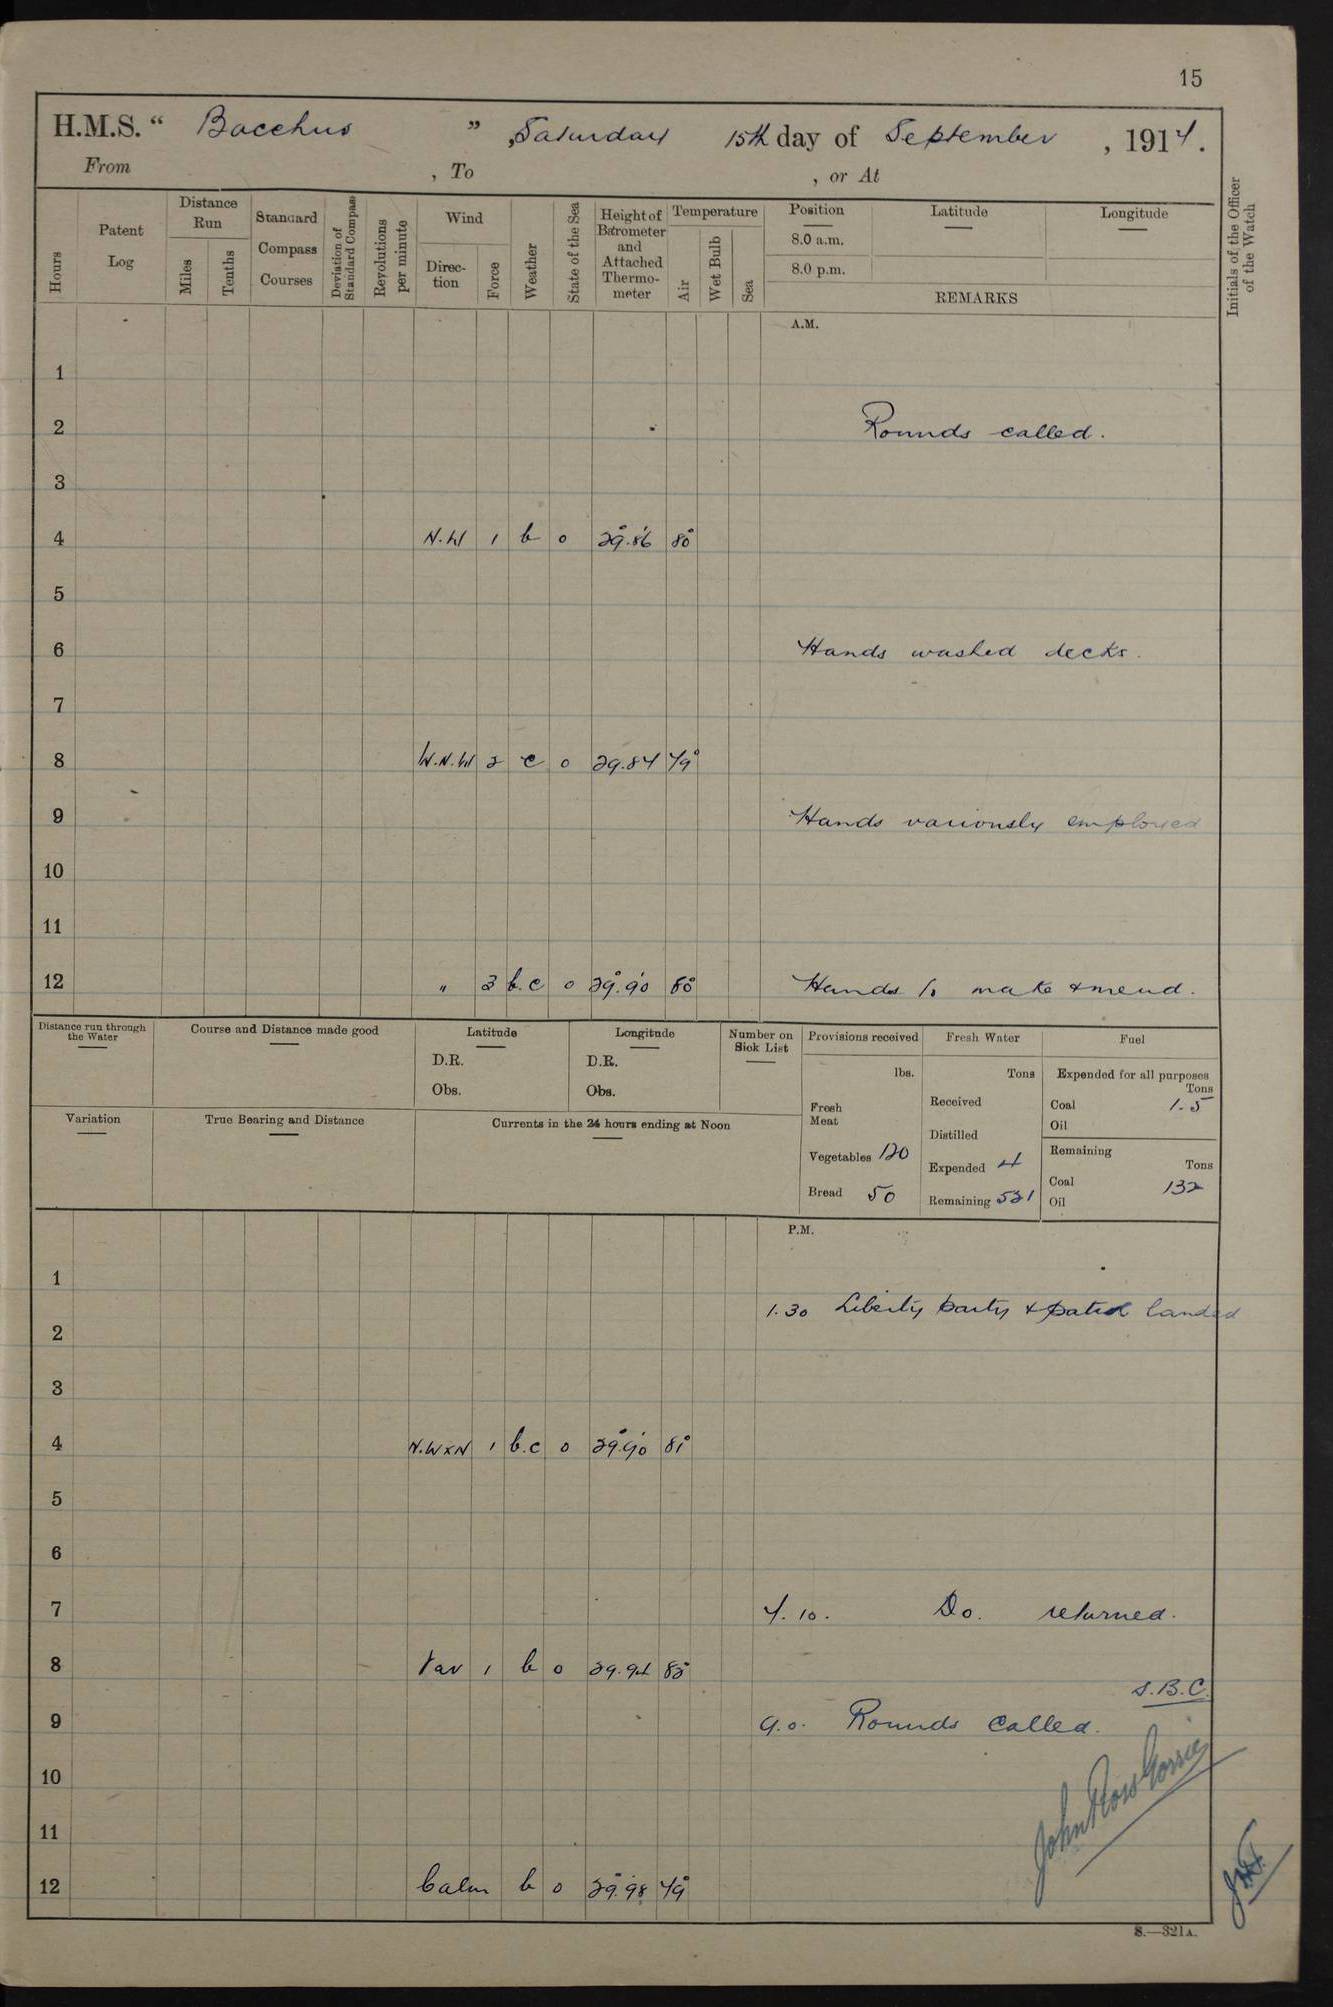 15
H.M.S. “ Bacchus ” , Saturday 15th day of September , 1917 .
From , To , or At
Hours
Patent Log
Distance Run
Miles
Tenths
Standard Compass Courses
Deviation of Standard Compass
Revolutions per minute
Wind
Direction
Force
Weather
State of the Sea
Height of Barometer and Attached Thermometer
Temperature
Air
Wet Bulb
Sea
Position Latitude Longitude
8.0 a.m.
8.0 p.m.
REMARKS
Initials of the Officer of the Watch
A.M.
1
2 Rounds called.
3
4 N.W 1 b 0 29.86 80°
5
6 Hands washed decks.
7
8 W.N.W 2 c 0 29.84 79°
9 Hands variously employed
10
11
12 " 2 b.c 0 29.90 80° Hands to make & mend.
Distance run through the Water
Course and Distance made good
Latitude
D.R.
Obs.
Longitude
D.R.
Obs.
Number on Sick List
Variation
True Bearing and Distance
Currents in the 24 hours ending at Noon
Provisions received
lbs.
Fresh Meat
Vegetables 120
Bread 50
Fresh Water
Tons
Received
Distilled
Expended 4
Remaining 521
Fuel
Expended for all purposes
Tons
Coal 1.5
Oil
Remaining
Tons
Coal 132
Oil
P.M.
1
1.30 Liberty party & patrol landed
2
3
4 N.W x N 1 b.c 0 29.90 81°
5
6
7 7.10. Do. returned.
8 Var 1 b 0 29.94 82°
S.B.C.
9 9.0. Rounds called.
10
11
John Ross Gorrie
12 Calm b 0 29.98 79°
S.—321A.